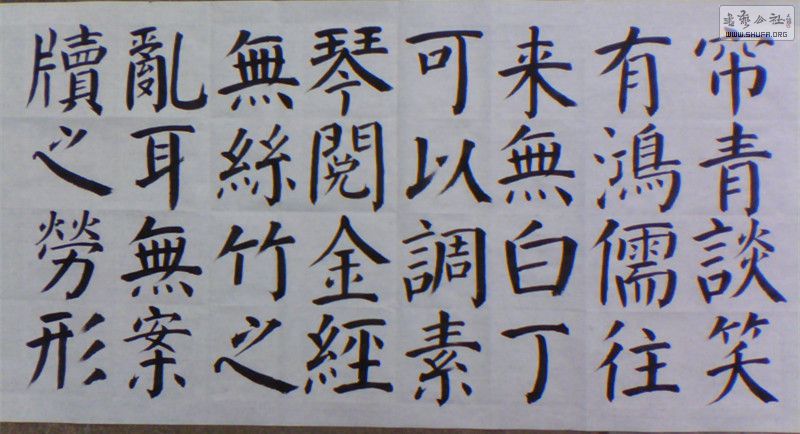 帘青談笑
有鴻儒往
来無白丁
可以調素
琴閱金經
無絲竹之
亂耳無案
牘之勞形
书艺公社
WWW.SHUFA.ORG